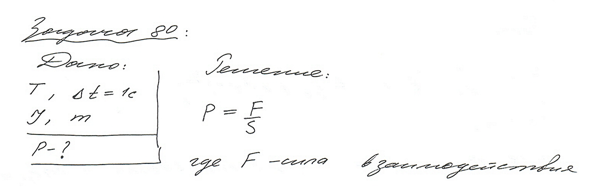 Задача 80:
Дано:
T, Δt = 1c
J, m
P - ?
Решение:
P = F/S
где F - сила взаимодействия